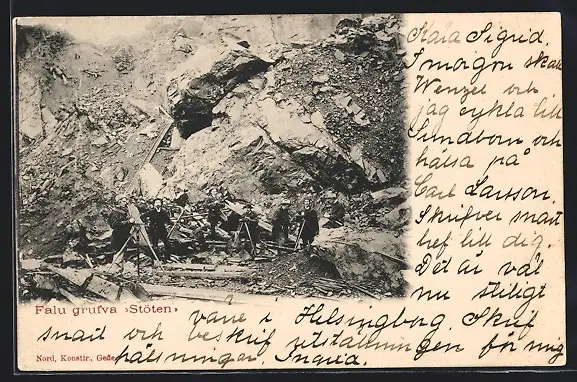 Kära Sigrid.
I morgon skall
Wenzel och
jag cykla till
Sundborn och
hälsa på
Carl Larsson.
Skrifver snart
bref till dig.
Det är väl
nu stiligt
Falu grufva »Stöten»
vara i Helsingborg. Skrif
snart och beskrif utställningen för mig
Nord, Konsttr., Gefle
hälsningar.